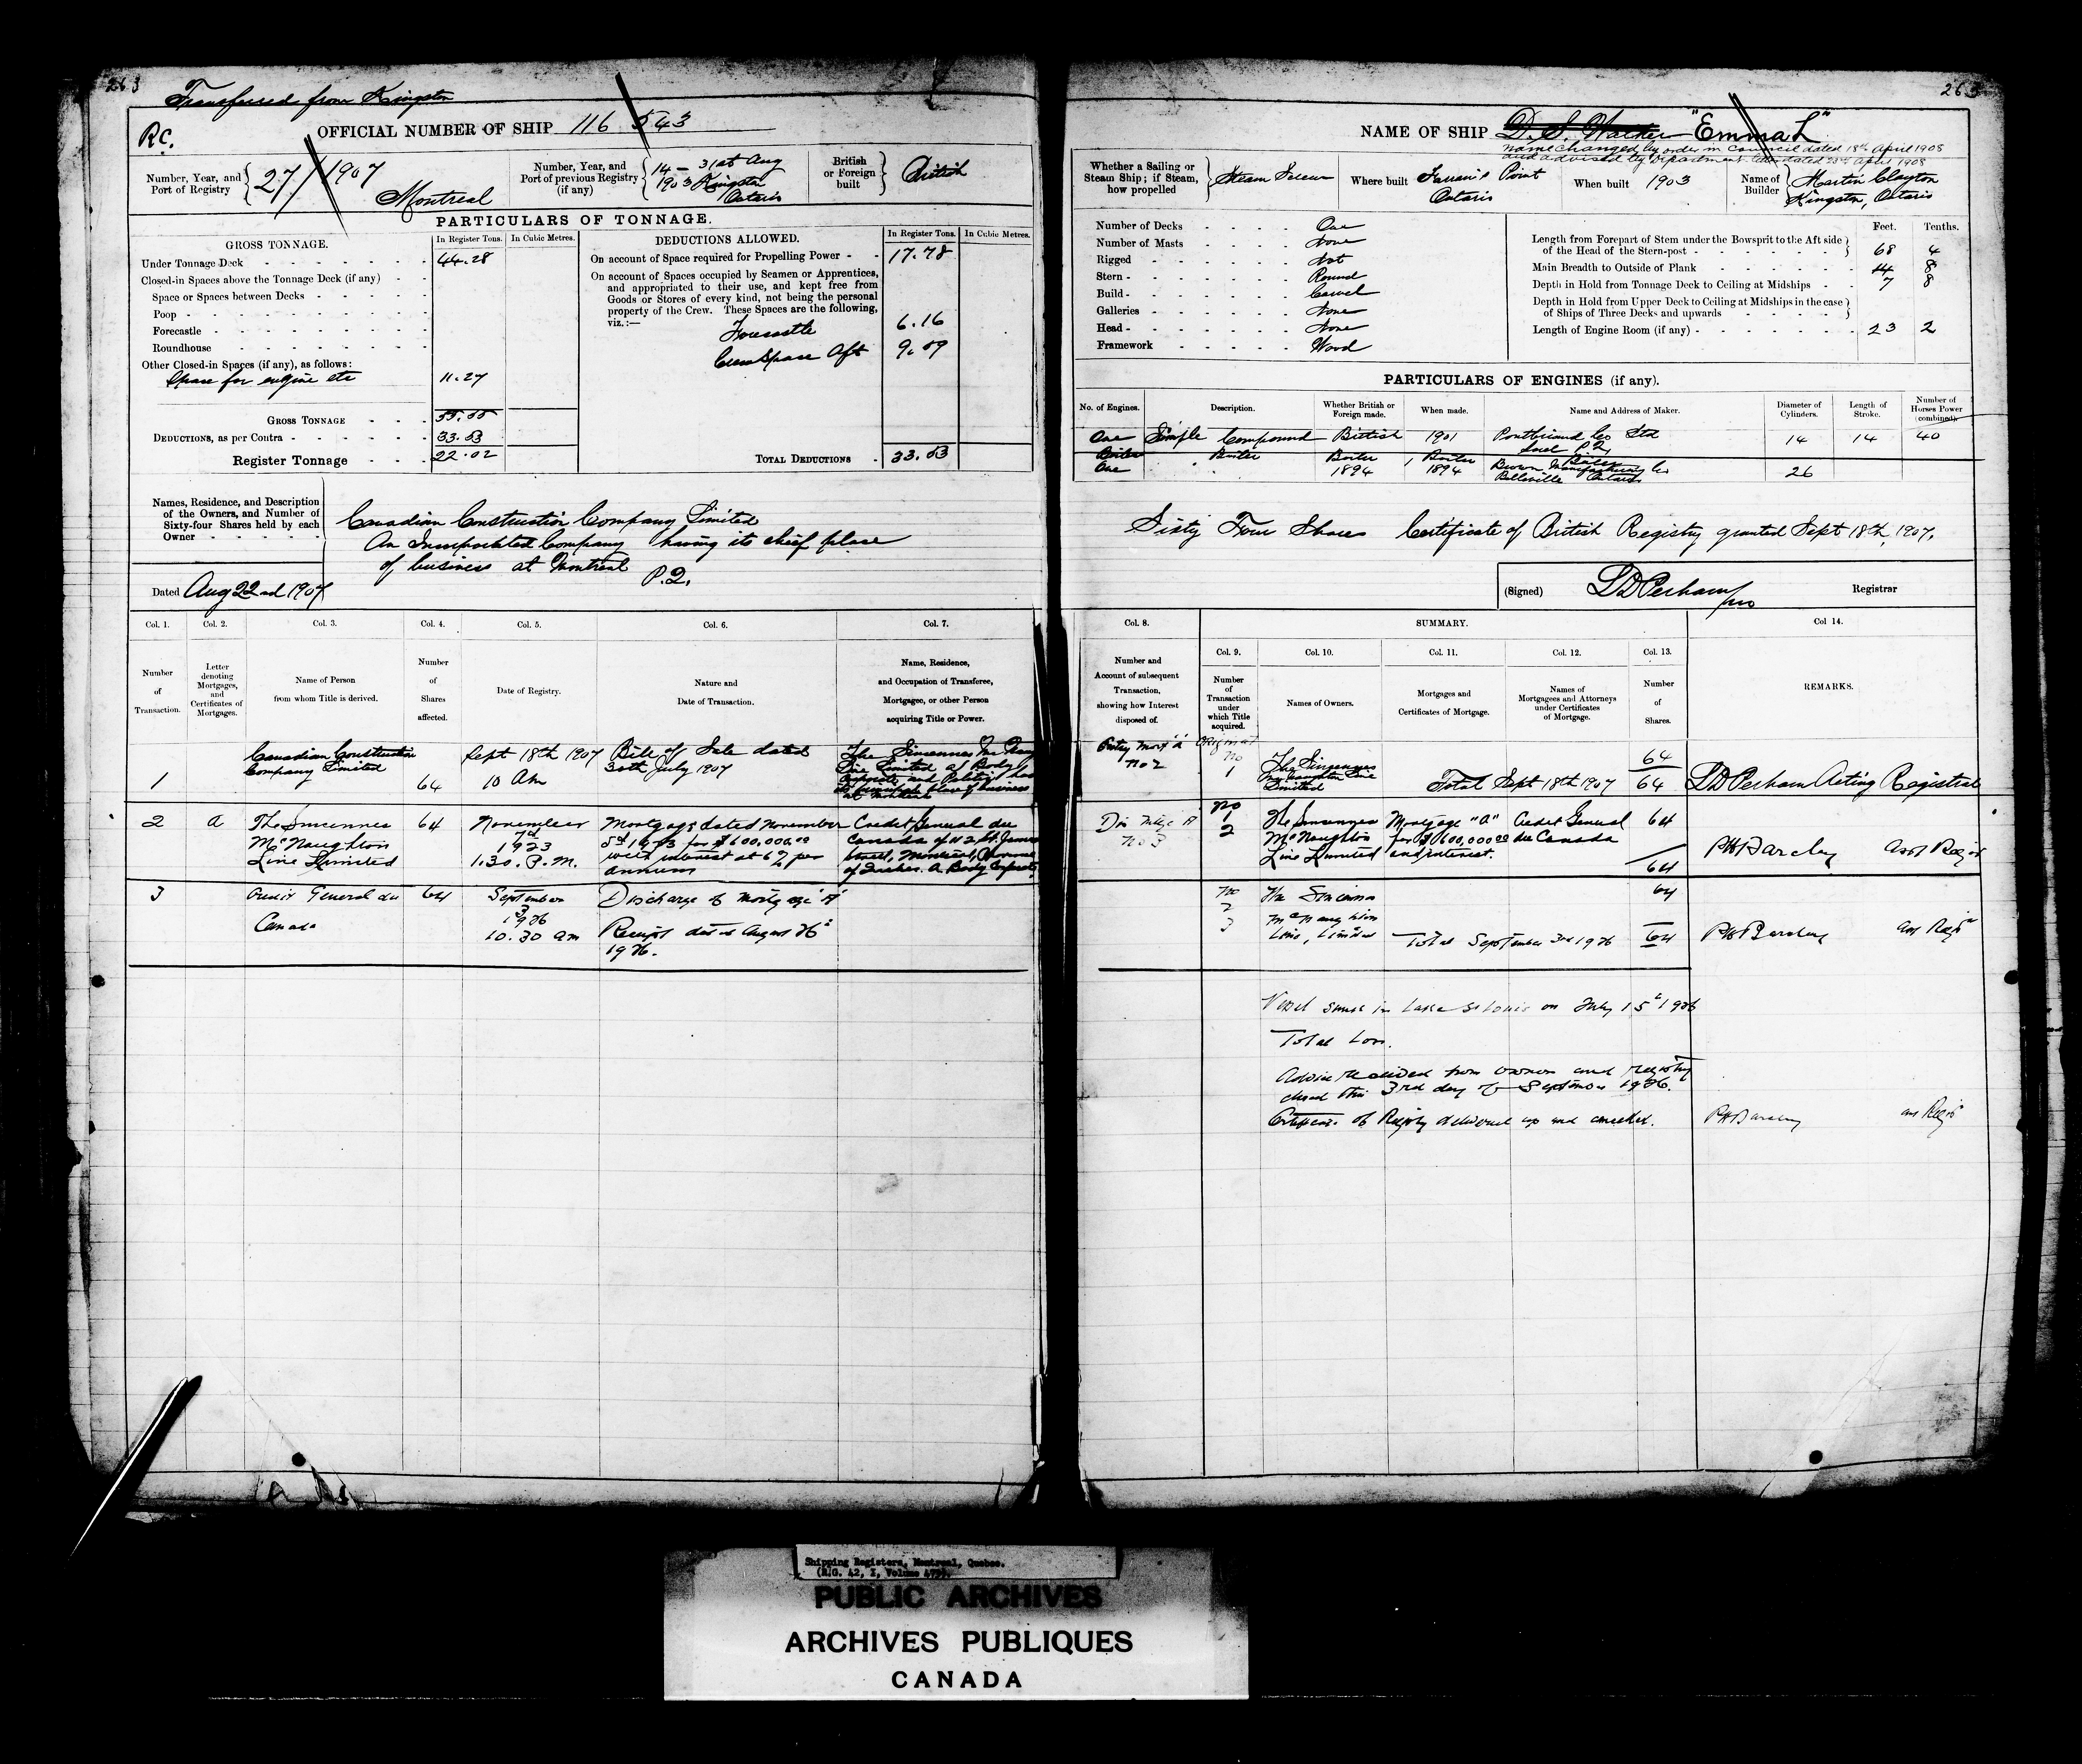 263
Transferred from Kingston
R.C.
OFFICIAL NUMBER OF SHIP 116 543
Number, Year, and Port of Registry 27/1907 Montreal
Number, Year, and Port of previous Registry (if any) 14 – 31st Aug 1903 Kingston Ontario
British or Foreign built British
PARTICULARS OF TONNAGE.
GROSS TONNAGE. In Register Tons. In Cubic Metres.
Under Tonnage Deck 44.28
Closed-in Spaces above the Tonnage Deck (if any)
Space or Spaces between Decks
Poop
Forecastle
Roundhouse
Other Closed-in Spaces (if any), as follows:
Space for engine etc 11.27
GROSS TONNAGE 55.55
DEDUCTIONS, as per Contra 33.53
Register Tonnage 22.02
DEDUCTIONS ALLOWED. In Register Tons. In Cubic Metres.
On account of Space required for Propelling Power 17.78
On account of Spaces occupied by Seamen or Apprentices,
and appropriated to their use, and kept free from
Goods or Stores of every kind, not being the personal
property of the Crew. These Spaces are the following,
viz.:—
Forecastle 6.16
Crew Space Aft 9.59
TOTAL DEDUCTIONS 33.53
Names, Residence, and Description
of the Owners, and Number of
Sixty-four Shares held by each
Owner
Canadian Construction Company Limited
An Incorporated Company having its chief place
of business at Montreal
P.Q.
Dated Aug 22nd 1907
Col. 1. Col. 2. Col. 3. Col. 4. Col. 5. Col. 6. Col. 7.
Number of Transaction.
Letter denoting Mortgages, and Certificates of Mortgages.
Name of Person from whom Title is derived.
Number of Shares affected.
Date of Registry.
Nature and Date of Transaction.
Name, Residence, and Occupation of Transferee, Mortgagee, or other Person acquiring Title or Power.
1
Canadian Construction
Company Limited
64
Sept 18th 1907
10 Am
Bill of Sale dated
30th July 1907
The Sincennes
Line Limited a Body
Corporate and Politic has
its principal place of business
at Montreal
2 A
The Sincennes
McNaughton
Line Limited
64
November
7th
1923
1.30. P.M.
Mortgage dated November
1923 for $600,000.00
with interest at 6% per
annum
Credit General du
Canada of 112 St. James
Street, Montreal, Province
of Quebec. A Body Corporate
3
Credit General du
Canada
64
September
3
1926
10.30 am
Discharge of Mortgage "A"
Receipt dated August 26th
1926.
263
NAME OF SHIP D. S. Walker "Emma L"
name changed by order in Council dated 18th April 1908
and advised by Department letter dated 23rd April 1908
Whether a Sailing or Steam Ship; if Steam, how propelled Steam Screw
Where built Farran's Point Ontario
When built 1903
Name of Builder Martin Clayton Kingston, Ontario
Number of Decks One
Number of Masts None
Rigged Not
Stern Round
Build Carvel
Galleries None
Head None
Framework Wood
Feet. Tenths.
Length from Forepart of Stem under the Bowsprit to the Aft side
of the Head of the Stern-post 68 4
Main Breadth to Outside of Plank 14 8
Depth in Hold from Tonnage Deck to Ceiling at Midships 7 8
Depth in Hold from Upper Deck to Ceiling at Midships in the case
of Ships of Three Decks and upwards
Length of Engine Room (if any) 23 2
PARTICULARS OF ENGINES (if any).
No. of Engines. Description. Whether British or Foreign made. When made. Name and Address of Maker. Diameter of Cylinders. Length of Stroke. Number of Horses Power (combined).
One Simple Compound British 1901 Pontbriand Co Ltd Sorel P.Q. 14 14 40
Boiler Boiler Boiler Boiler Boiler
One 1894 1894 Brown Manufacturing Co
Belleville Ontario 26
Sixty Four Shares Certificate of British Registry granted Sept 18th, 1907.
(Signed) Perham Registrar
Col. 8. SUMMARY. Col 14.
Number and Account of subsequent Transaction, showing how Interest disposed of.
Col. 9. Col. 10. Col. 11. Col. 12. Col. 13.
Number of Transaction under which Title acquired.
Names of Owners.
Mortgages and Certificates of Mortgage.
Names of Mortgagees and Attorneys under Certificates of Mortgage.
Number of Shares.
REMARKS.
Entry Mort "A"
No 2
Original
No
1
The Sincennes
McNaughton Line
Limited
Total Sept 18th 1907
64
64
Perham Acting Registrar
Dis Mtge A
No 3
No
1
2
The Sincennes
McNaughton
Line Limited
Mortgage "A"
for $600,000.00
and interest.
Credit General
du Canada
64
64
PHBarclay Asst Regr
No
2
3
The Sincennes
McNaughton
Line, Limited
Total September 3rd 1926
64
64
PHBarclay Ass Regr
Vessel sunk in Lake St Louis on July 15th 1926
Total Loss.
Advice received from owner and registry
closed this 3rd day of September 1926.
Certificate of Registry delivered up and cancelled.
PHBarclay Ass Regr
Shipping Registers, Montreal, Quebec.
(R.G. 42, I, Volume 479).
PUBLIC ARCHIVES
ARCHIVES PUBLIQUES
CANADA